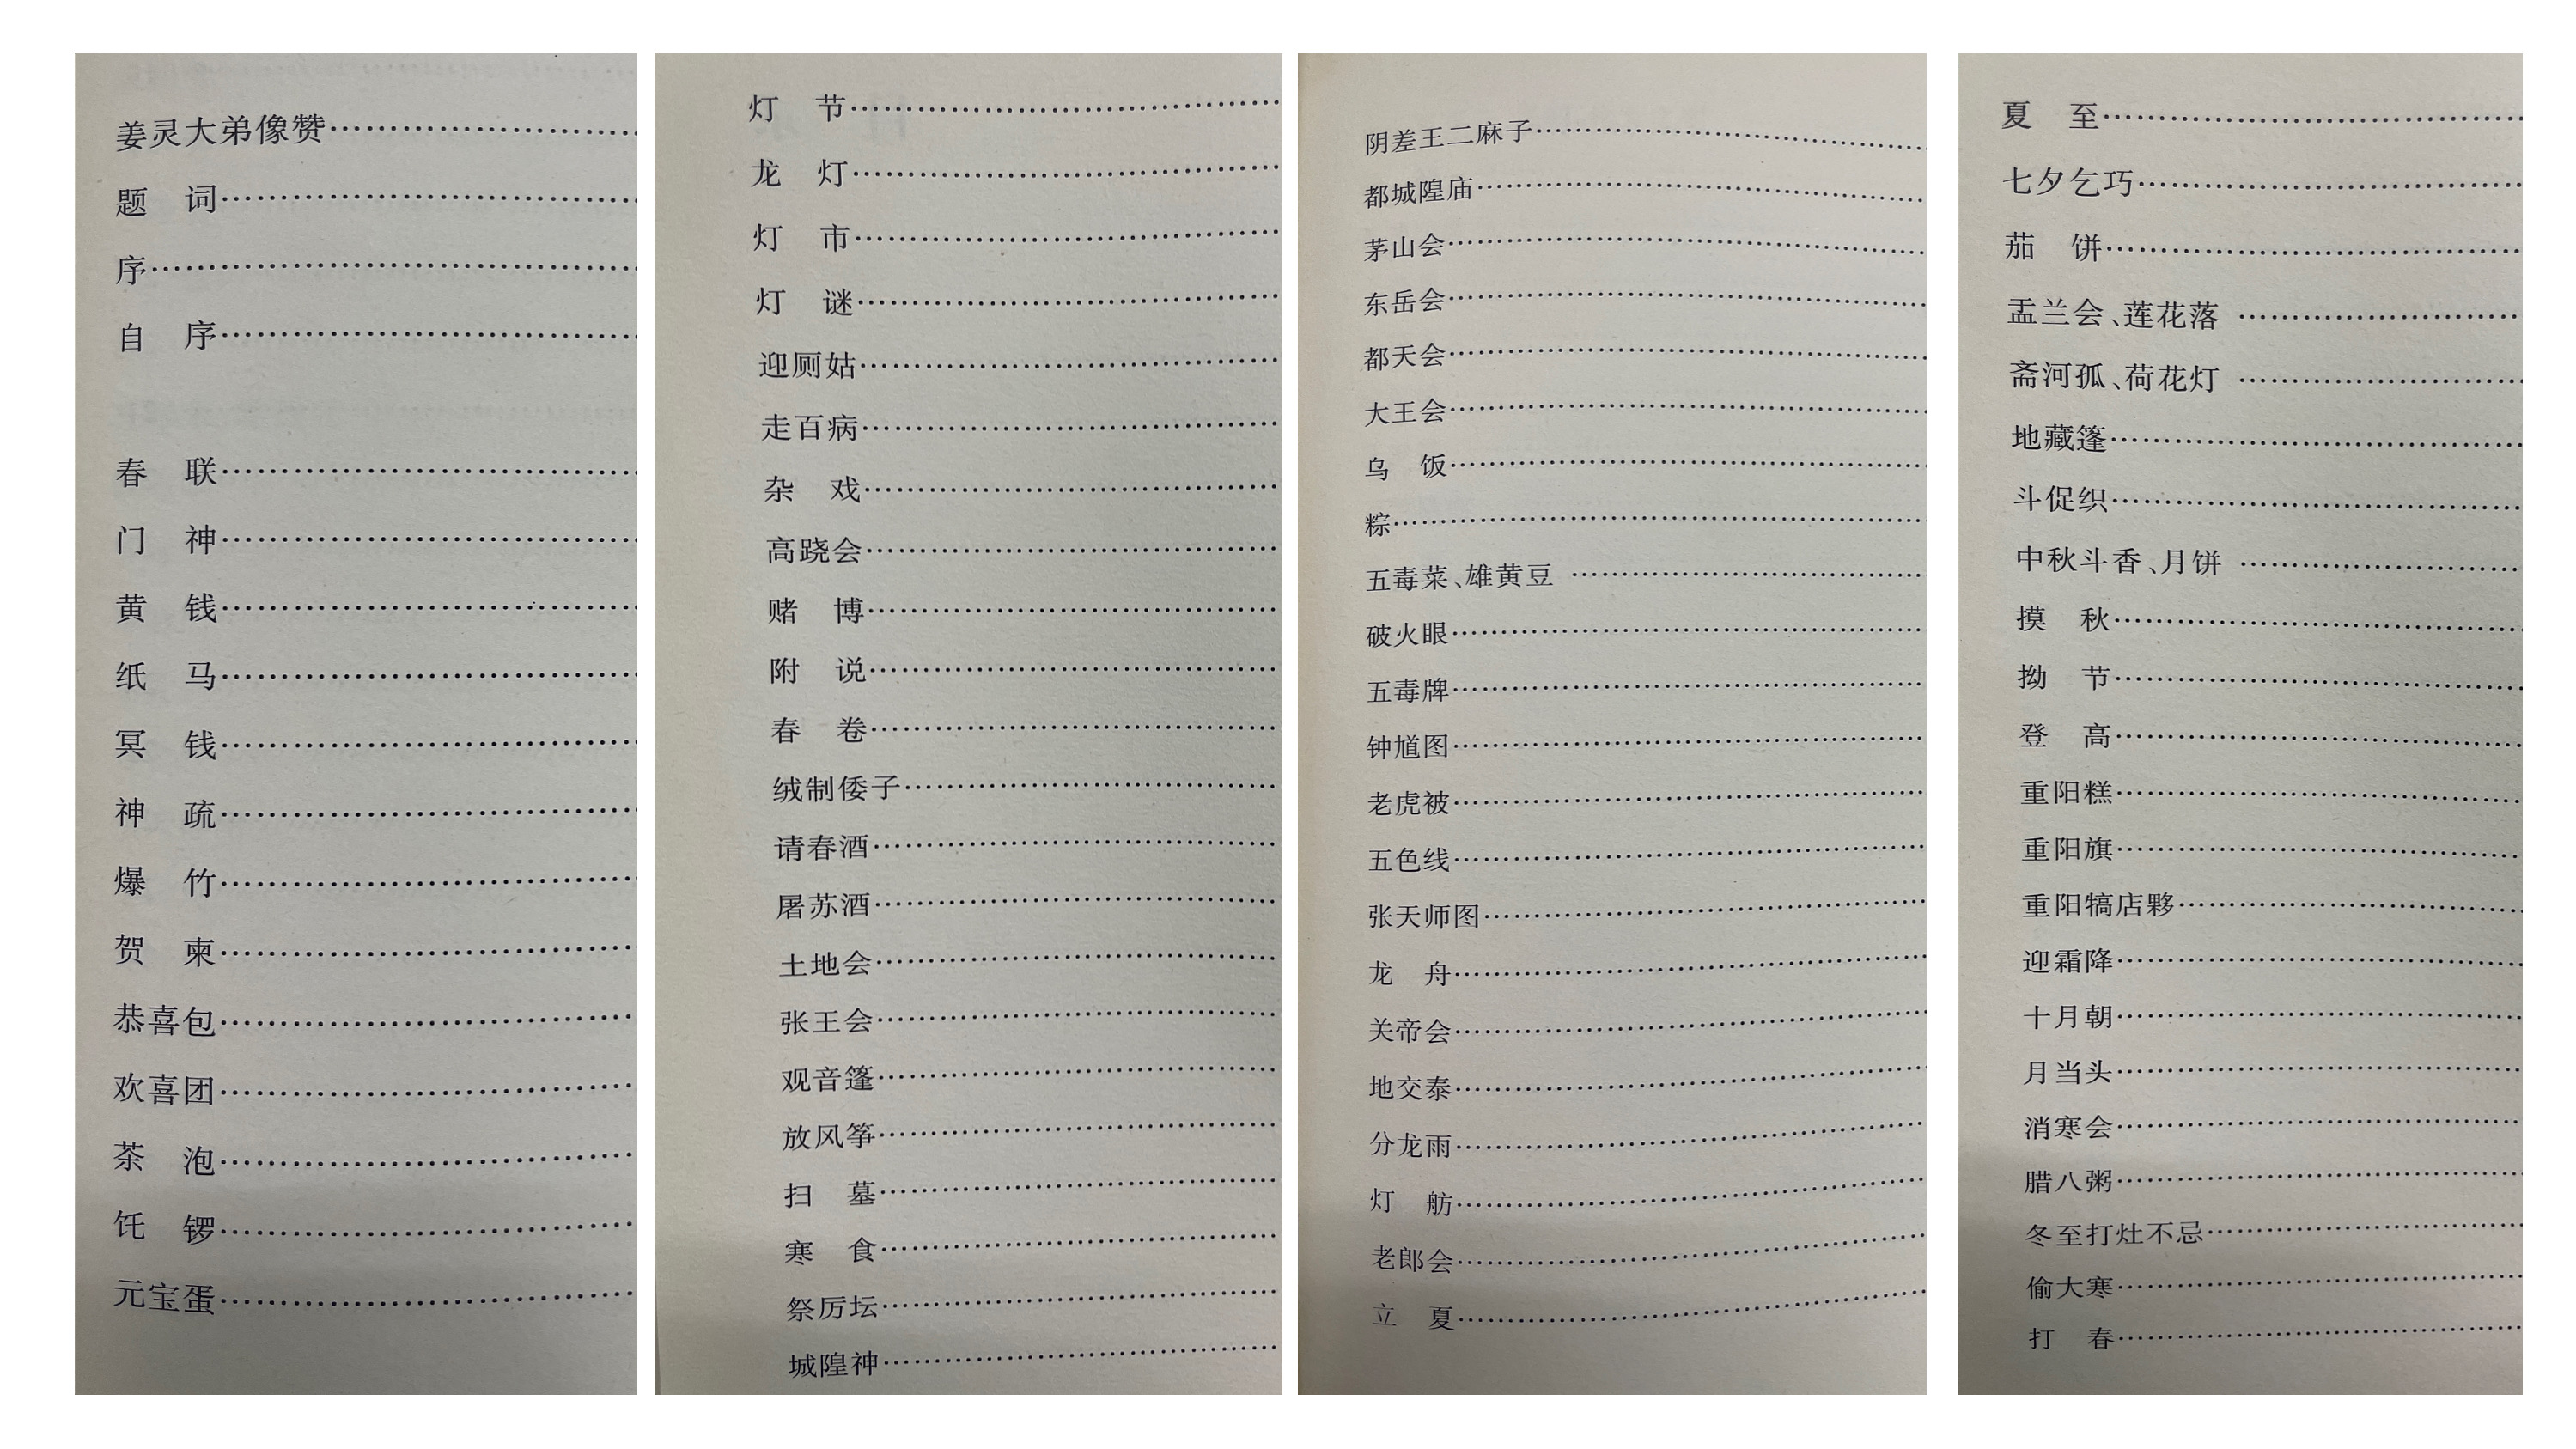 姜灵大弟像赞
题　词
序
自　序
春　联
门　神
黄　钱
纸　马
冥　钱
神　疏
爆　竹
贺　柬
恭喜包
欢喜团
茶　泡
饦　锣
元宝蛋
灯　节
龙　灯
灯　市
灯　谜
迎厕姑
走百病
杂　戏
高跷会
赌　博
附　说
春　卷
绒制倭子
请春酒
屠苏酒
土地会
张王会
观音篷
放风筝
扫　墓
寒　食
祭厉坛
城隍神
阴差王二麻子
都城隍庙
茅山会
东岳会
都天会
大王会
乌　饭
粽
五毒菜、雄黄豆
破火眼
五毒牌
钟馗图
老虎被
五色线
张天师图
龙　舟
关帝会
地交泰
分龙雨
灯　舫
老郎会
立　夏
夏　至
七夕乞巧
茄　饼
盂兰会、莲花落
斋河孤、荷花灯
地藏篷
斗促织
中秋斗香、月饼
摸　秋
拗　节
登　高
重阳糕
重阳旗
重阳犒店夥
迎霜降
十月朝
月当头
消寒会
腊八粥
冬至打灶不忌
偷大寒
打　春